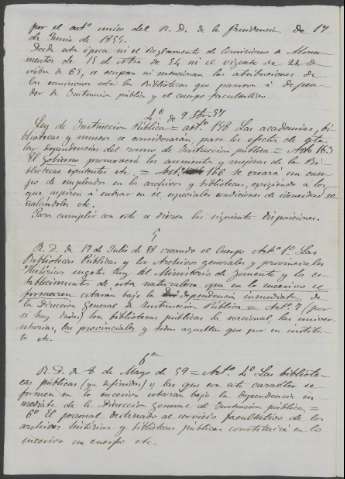 por el artº unico del R. D. de la Presidencia de 17
de Junio de 1854.
Desde esta época ni el Reglamento de Comisiones de Monu-
mentos de 15 de Nbre de 54 ni el vigente de 24 de
de 65, se ocupan ni mencionan las atribuciones de
las comisiones sobre las Bibliotecas que pasaron á depen-
der de Instruccion pública y el cuerpo facultativo.
4ª
Ley de Instruccion Pública = artº 158 Las academias, bi-
bliotecas y museos se considerarán para los efectos de esta
ley dependencias del ramo de Instruccion pública = Artº 163
El Gobierno promoverá los aumentos y mejoras de las Bi-
bliotecas existentes etc. = Artº 166 se creará un cuer-
po de empleados en los archivos y bibliotecas, exigiendo á los
que aspiren á entrar en él especiales condiciones de idoneidad se-
ñalándoles etc.
Para cumplir con esto se dieron las siguientes disposiciones.
5
R. D. de 17 de Julio de 58 creando el Cuerpo Artº 1º Las
Bibliotecas Públicas y los Archivos generales y provinciales
históricos segun ley del Ministerio de Fomento y los es-
tablecimientos de esta naturaleza que en lo sucesivo se
formaren estarán bajo la dependencia inmediata de
la Direccion General de Instruccion Pública = Artº 7 (por
si hay duda) Son bibliotecas públicas la nacional, las univer-
sitarias, las provinciales y todas aquellas que por su institu-
to etc.
6ª
R. D. de 8 de Mayo de 59 = Artº 1º Las bibliote-
cas públicas (ya definidas) y las que con este caracter se
formen en lo sucesivo estarán bajo la dependencia in-
mediata de la Direccion General de Instruccion pública =
6º El personal destinado al servicio facultativo de los
archivos históricos y bibliotecas públicas constituirá en lo
sucesivo un cuerpo etc.